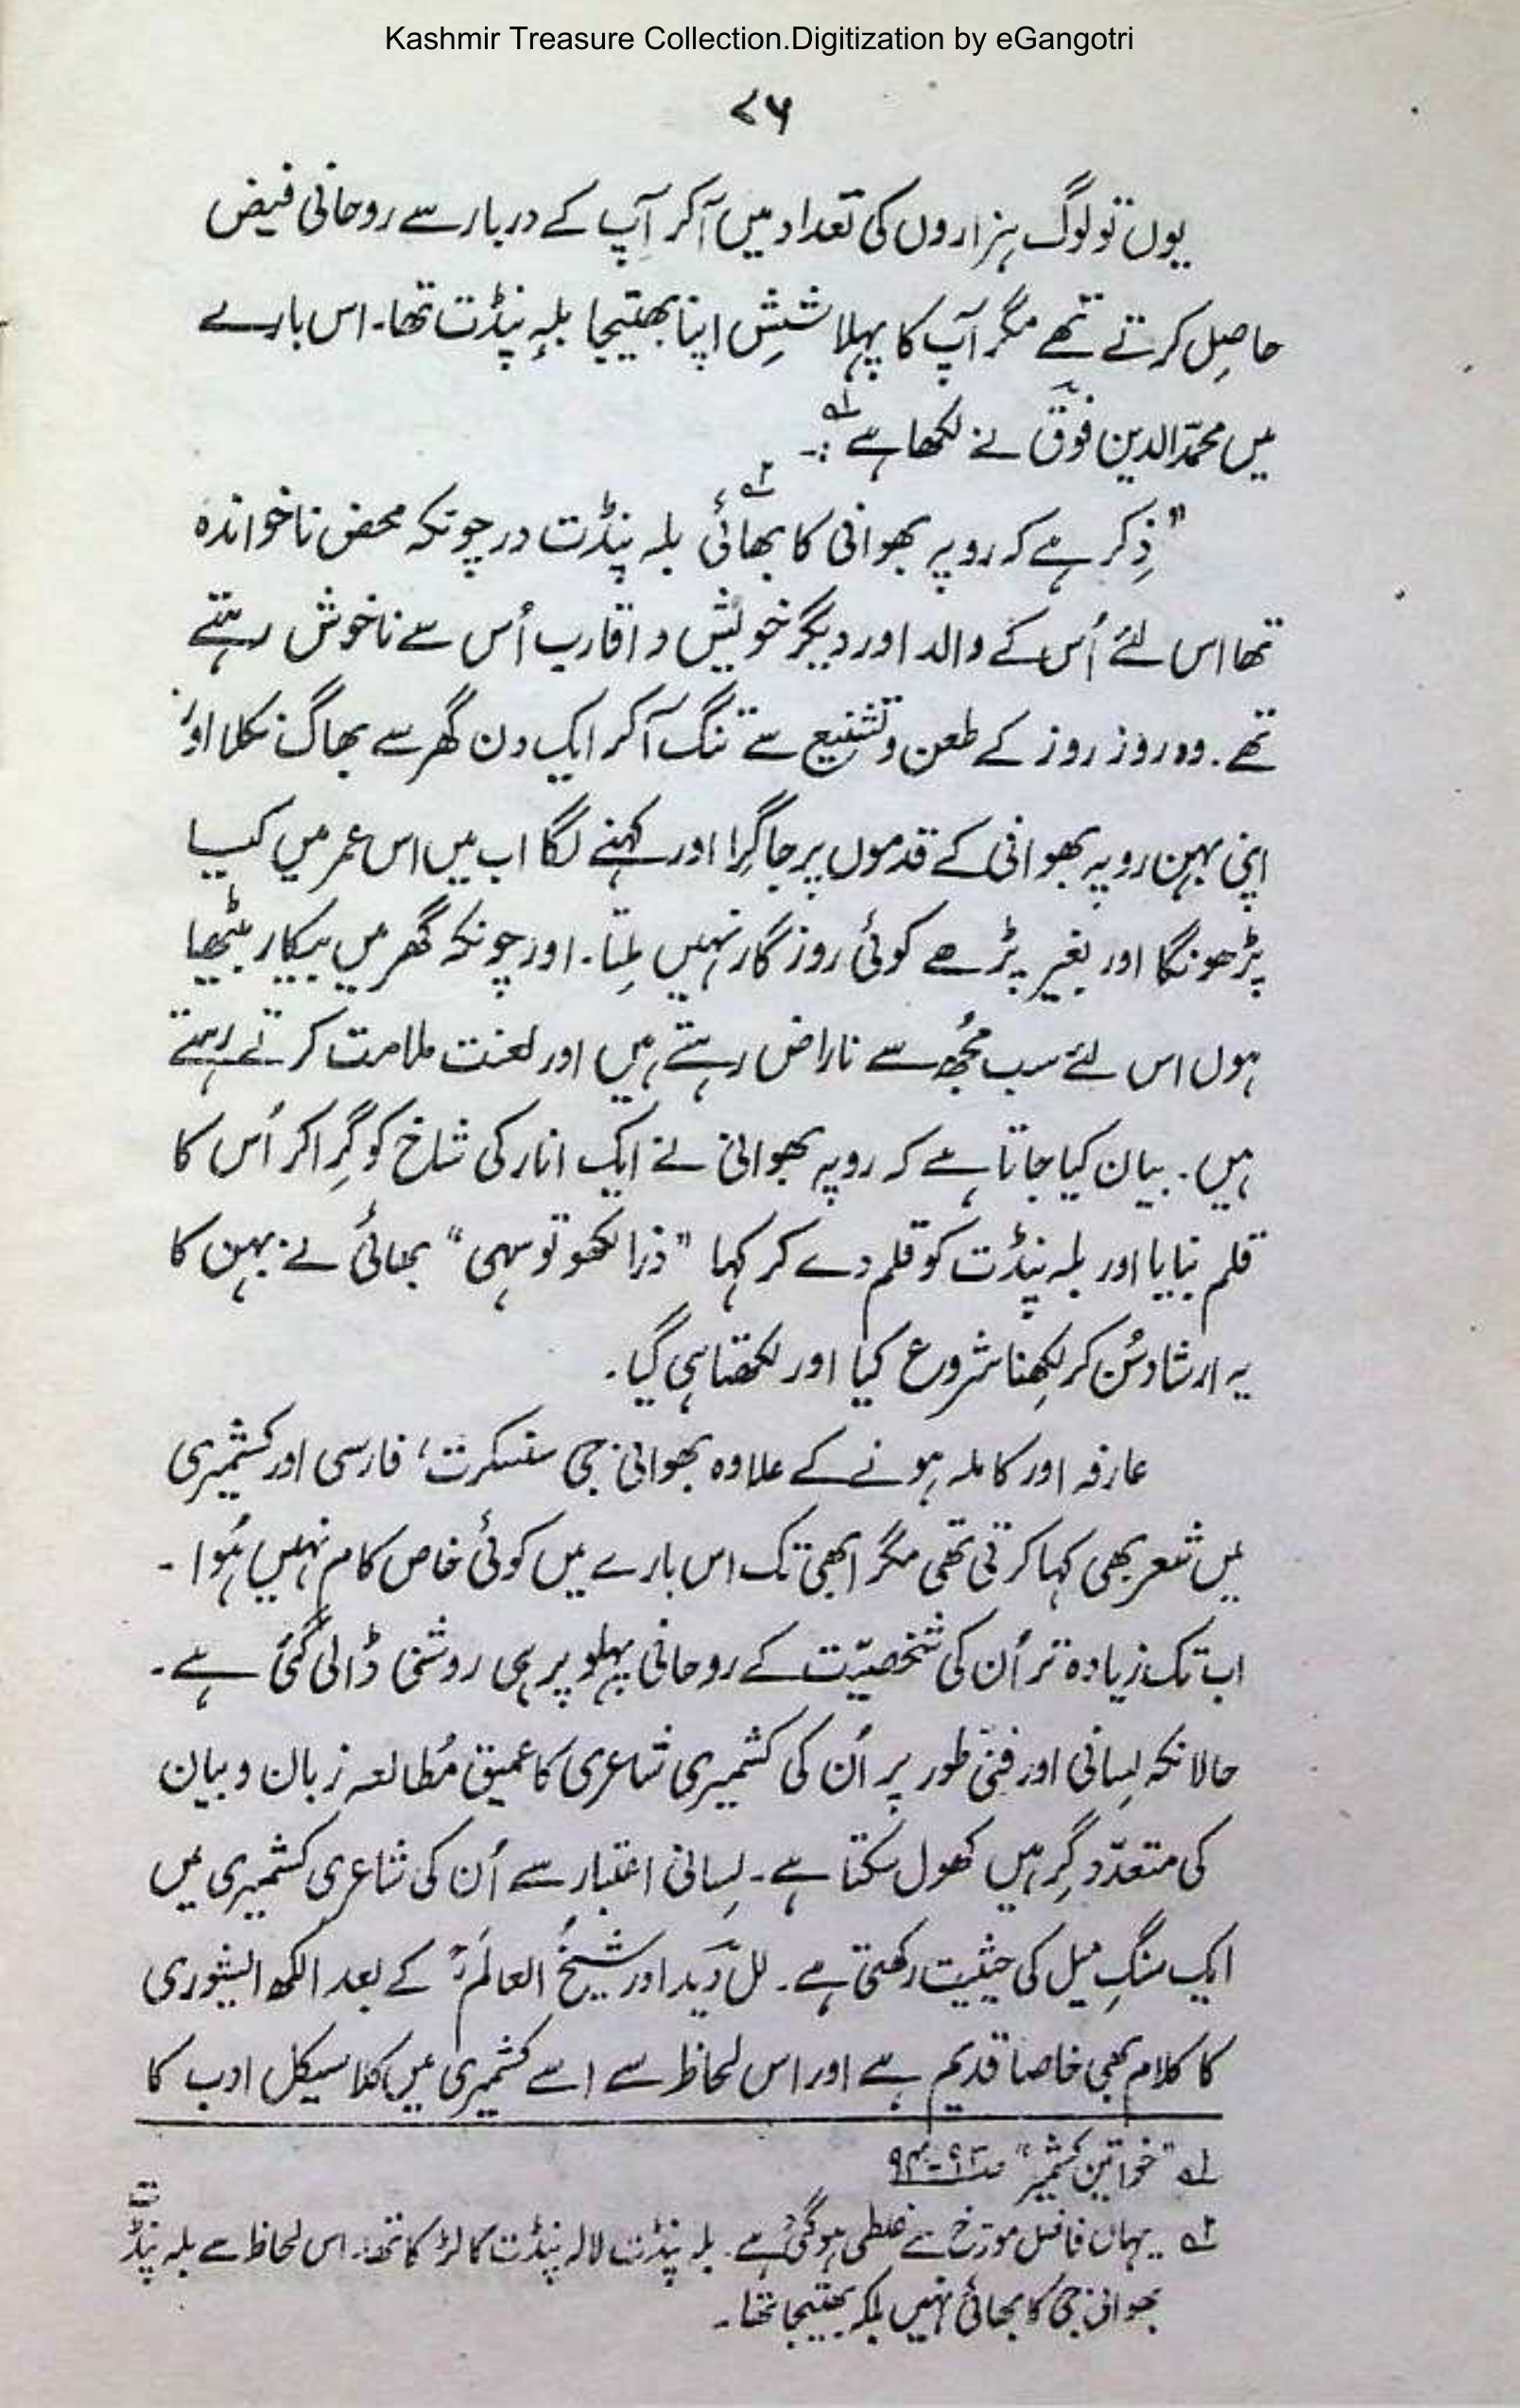 Kashmir Treasure Collection.Digitization by eGangotri
۷۶
یوں تو لوگ ہزاروں کی تعداد میں آکر آپ کے دربار سے روحانی فیض
حاصِل کرتے تھے مگر آپ کا پہلا شِشِ اپنا بھتیجا بلہِ پنڈت تھا۔ اس بارے
میں محمدّ الدین فوقؔ نے لکھا ہے ۱؎ :۔
"ذِکر ہے کہ روپہ بھوانی کا بھائی ۲؎ بلہ پنڈت در چونکہ محض ناخواندہ
تھا اس لئے اُس کے والد اور دیگر خویش و اقارب اُس سے ناخوش رہتے
تھے۔ وہ روز روز کے طعن و تشنیع سے تنگ آکر ایک دن گھر سے بھاگ نکلا اور
اپنی بہن روپہ بھوانی کے قدموں پر جا گِرا اور کہنے لگا اب میں اس عمر میں کیا
پڑھونگا اور بغیر پڑھے کوئی روزگار نہیں مِلتا۔ اور چونکہ گھر میں بیکار بیٹھا
ہوں اس لئے سب مُجھ سے ناراض رہتے ہیں اور لعنت ملامت کرتے رہتے
ہیں۔ بیان کیا جاتا ہے کہ روپہ بھوانی نے ایک انار کی شاخ کو گِرا کر اُس کا
قلم بنایا اور بلہ پنڈت کو قلم دے کر کہا "ذرا لکھو تو سہی" بھائی نے بہن کا
یہ ارشاد سُن کر لِکھنا شروع کیا اور لکھتا ہی گیا۔
عارفہ اور کاملہ ہونے کے علاوہ بھوانی جی سنسکرت، فارسی اور کشمیری
میں شعر بھی کہا کرتی تھی مگر ابھی تک اس بارے میں کوئی خاص کام نہیں ہُوا۔
اب تک زیادہ تر اُن کی شخصیّت کے روحانی پہلو پر ہی روشنی ڈالی گئی ہے۔
حالانکہ لِسانی اور فنّی طور پر اُن کی کشمیری شاعری کا عمیق مُطالعہ زبان و بیان
کی متعدّد گِرہیں کھول سکتا ہے۔ لِسانی اعتبار سے اُن کی شاعری کشمیری میں
ایک سنگِ میل کی حیثیت رکھتی ہے۔ لل دَید اور شیخُ العالَمؒ کے بعد الکھ ایشوری
کا کلام بھی خاصا قدیم ہے اور اس لحاظ سے اسے کشمیری میں کلاسیکل ادب کا
۱؎ "خواتین کشمیر" ص ۹۲-۹۴
۲؎ یہاں فاضل مورّخ سے غلطی ہو گئی ہے۔ بلہ پنڈت لالہ پنڈت کا لڑکا تھا۔ اس لحاظ سے بلہ پنڈت
بھوانی جی کا بھائی نہیں بلکہ بھتیجا تھا۔